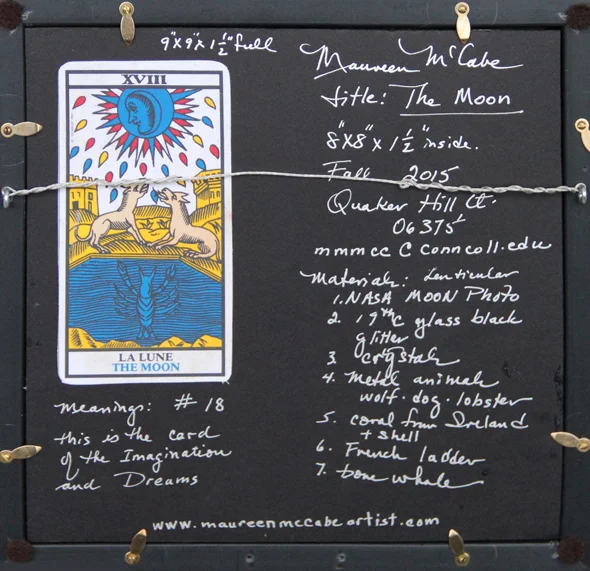 9"X9"X1½" full
Maureen McCabe
title: The Moon
8"X8"X1½" inside.
Fall 2015
Quaker Hill Ct.
06375
mmmcc C conncoll.edu
Materials: Lenticular
1. NASA MOON Photo
2. 19thC glass black
glitter
3 crystals
4. Metal animals
wolf·dog·lobster
5. coral from Ireland
+ shell
6. French ladder
7. bone whale
XVIII
LA LUNE
THE MOON
Meanings: #18
this is the card
of the Imagination
and Dreams
www.maureenmccabeartist.com